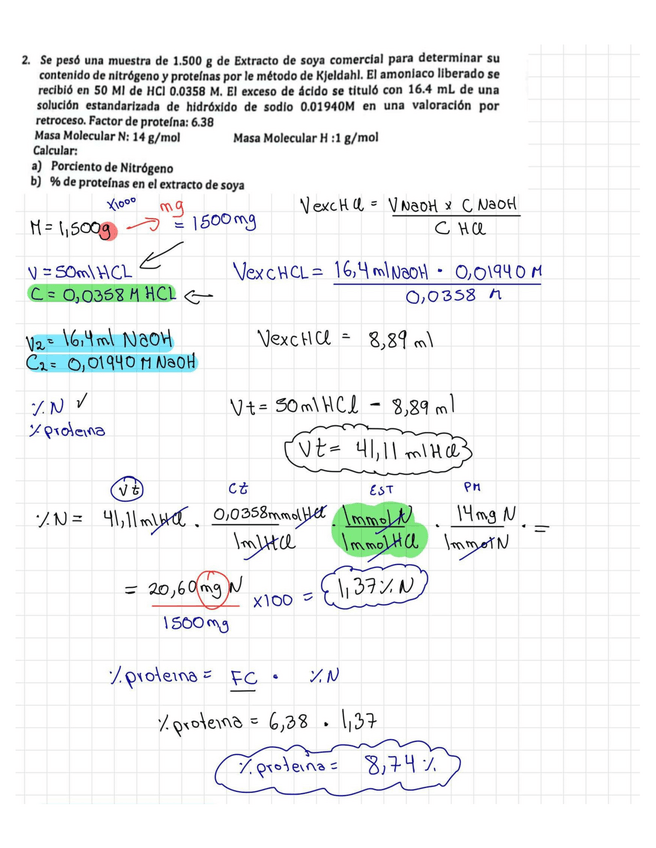 2. Se pesó una muestra de 1.500 g de Extracto de soya comercial para determinar su
contenido de nitrógeno y proteínas por le método de Kjeldahl. El amoniaco liberado se
recibió en 50 Ml de HCl 0.0358 M. El exceso de ácido se tituló con 16.4 mL de una
solución estandarizada de hidróxido de sodio 0.01940M en una valoración por
retroceso. Factor de proteína: 6.38
Masa Molecular N: 14 g/mol Masa Molecular H :1 g/mol
Calcular:
a) Porciento de Nitrógeno
b) % de proteínas en el extracto de soya
x1000 mg
M = 1,500g → = 1500mg
V = 50ml HCL
C = 0,0358 M HCL ←
V2 = 16,4ml NaOH
C2 = 0,01940 M NaOH
% N ✓
% proteina
VexcHCl = VNaOH x CNaOH
C HCl
VexcHCL = 16,4ml NaOH · 0,01940 M
0,0358 M
VexcHCl = 8,89 ml
Vt = 50ml HCl - 8,89 ml
Vt = 41,11 ml HCl
Vt Ct EST PM
% N = 41,11 ml HCl · 0,0358mmol HCl · 1mmol N · 14mg N · =
1ml HCl 1mmol HCl 1mmol N
= 20,60 mg N x100 = 1,37% N
1500mg
% proteina = FC · % N
% proteina = 6,38 · 1,37
% proteina = 8,74 %